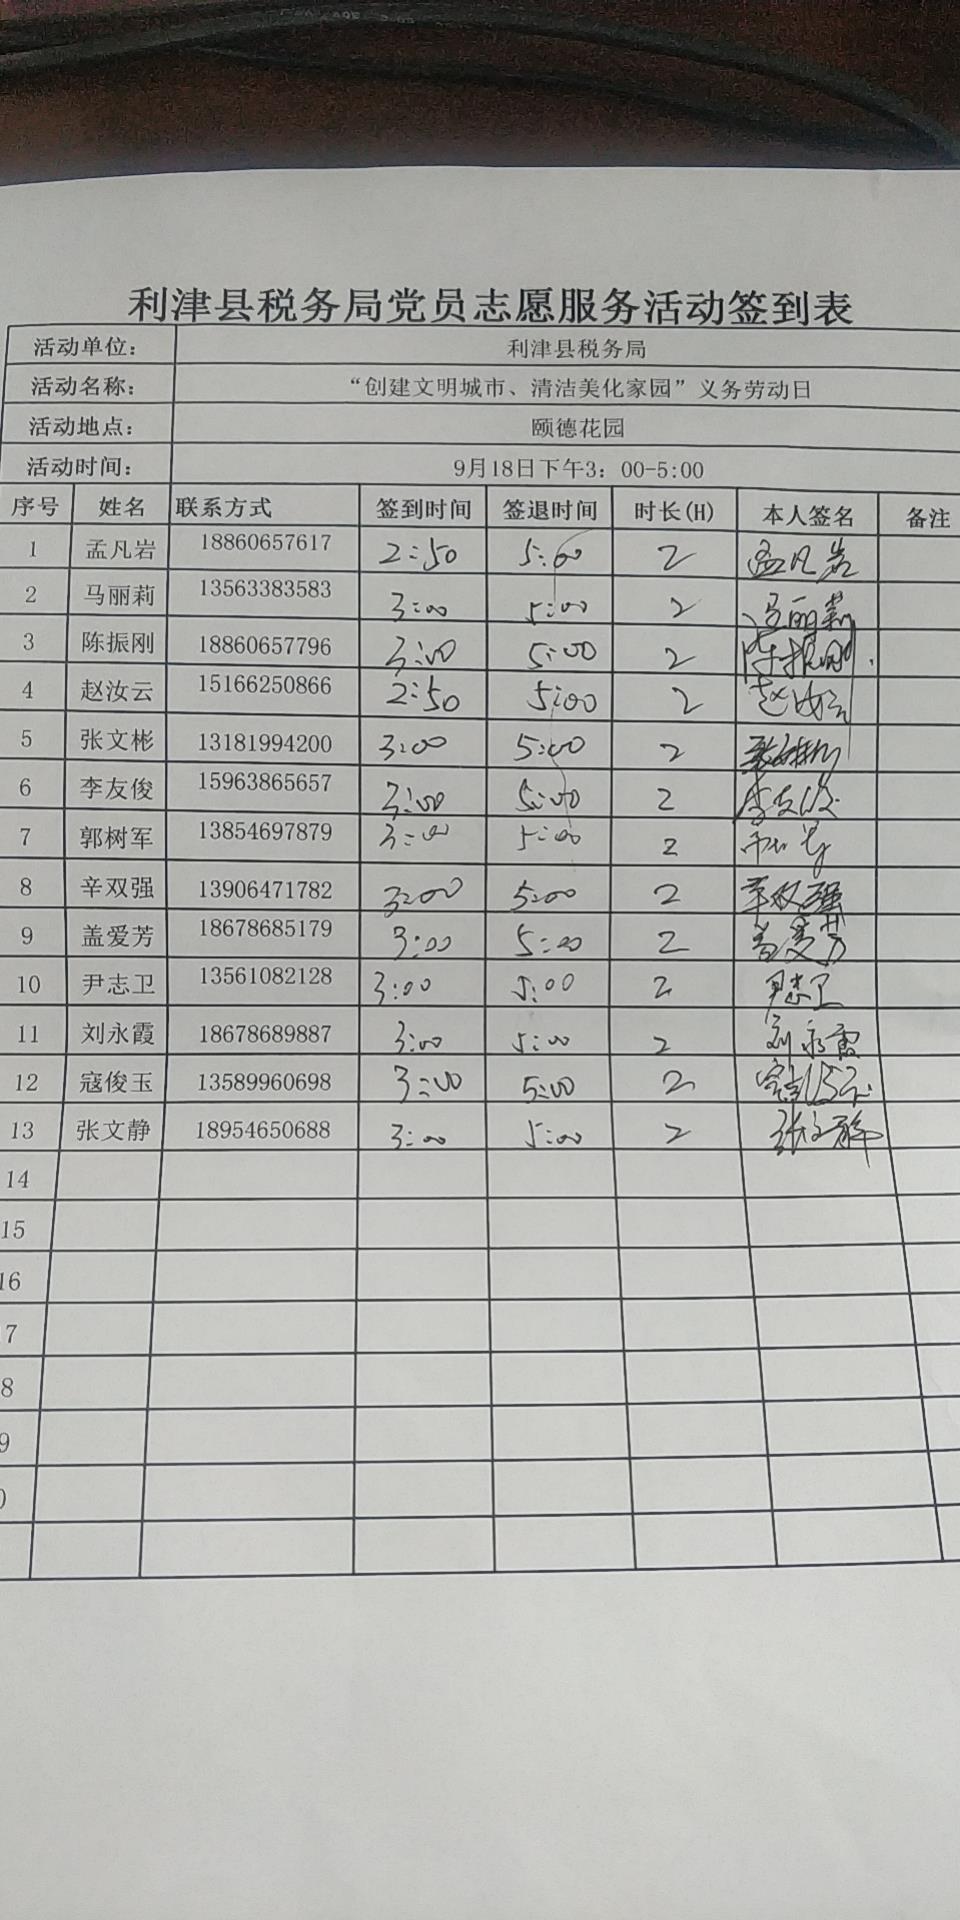 利津县税务局党员志愿服务活动签到表
活动单位： 利津县税务局
活动名称： “创建文明城市、清洁美化家园”义务劳动日
活动地点： 颐德花园
活动时间： 9月18日下午3：00-5:00
序号 姓名 联系方式 签到时间 签退时间 时长(H) 本人签名 备注
1 孟凡岩 18860657617 2:50 5:00 2 孟凡岩
2 马丽莉 13563383583 3:00 5:00 2 马丽莉
3 陈振刚 18860657796 3:00 5:00 2 陈振刚
4 赵汝云 15166250866 2:50 5:00 2 赵汝云
5 张文彬 13181994200 3:00 5:00 2 张文彬
6 李友俊 15963865657 3:00 5:00 2 李友俊
7 郭树军 13854697879 3:00 5:00 2
8 辛双强 13906471782 3:00 5:00 2 辛双强
9 盖爱芳 18678685179 3:00 5:00 2 盖爱芳
10 尹志卫 13561082128 3:00 5:00 2 尹志卫
11 刘永霞 18678689887 3:00 5:00 2 刘永霞
12 寇俊玉 13589960698 3:00 5:00 2 寇俊玉
13 张文静 18954650688 3:00 5:00 2 张文静
14
15
16
7
8
9
0